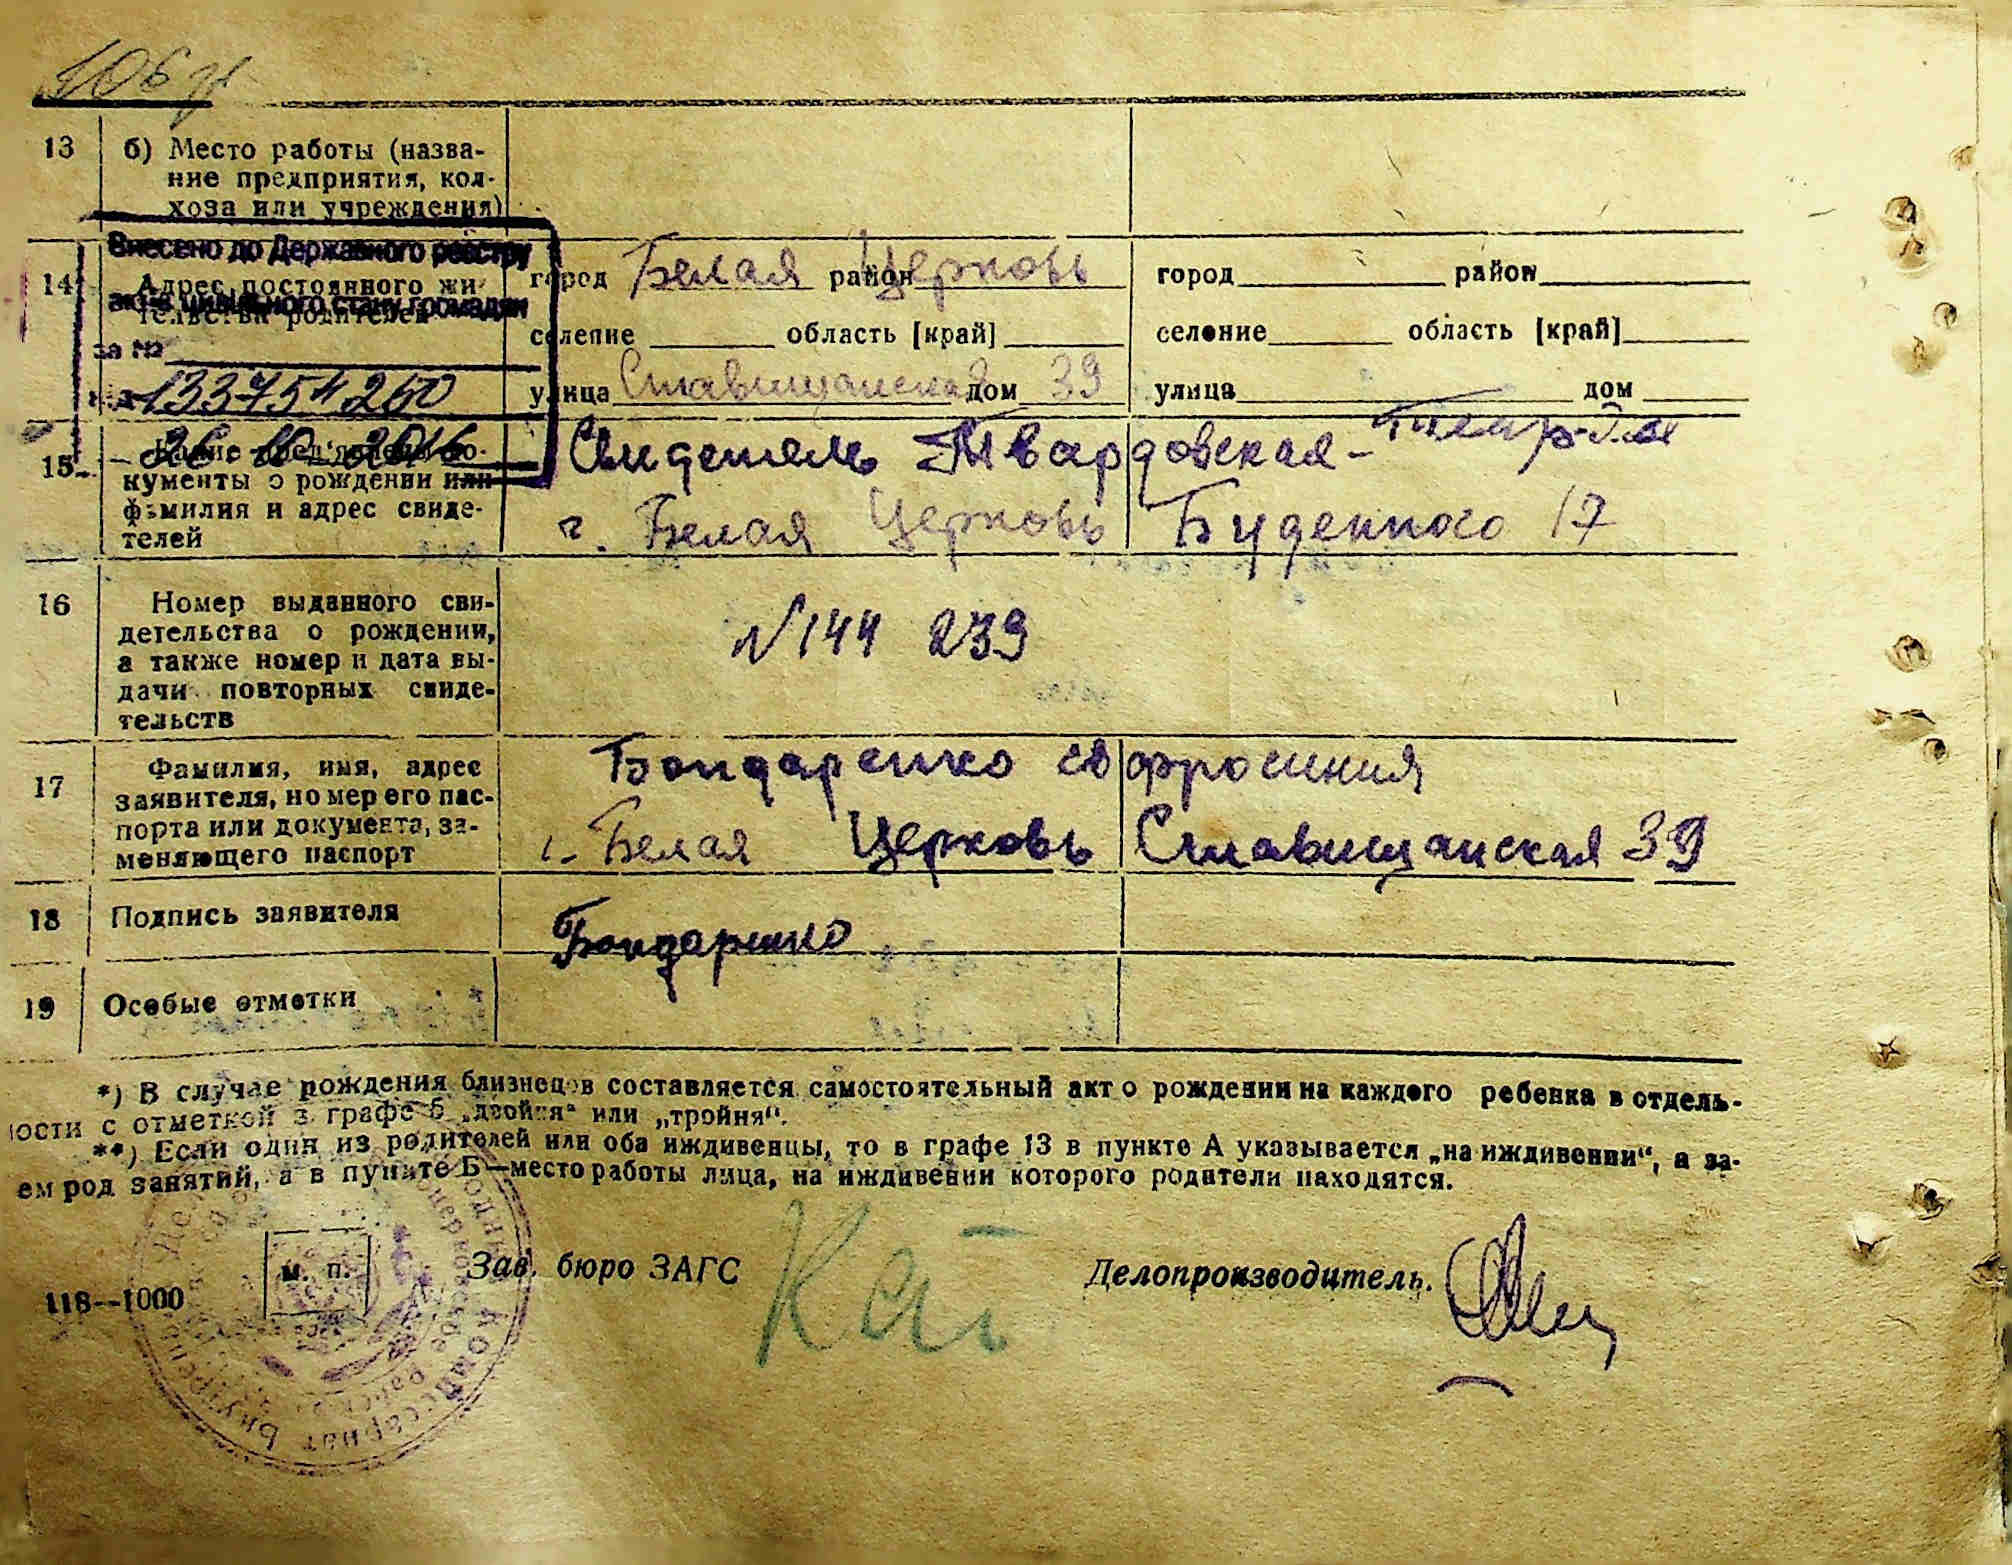 106
13 б) Место работы (назва-
ние предприятия, кол-
хоза или учреждения)
Внесено до Державного реєстру
актів цивільного стану громадян
за №
від 133754260
26. 10. 2016
14 Адрес постоянного жи-
тельства родителей
город Белая Церковь район
селение область [край]
улица Ставищанская дом 39
город район
селение область [край]
улица дом
15 Какие предъявлены до-
кументы о рождении или
фамилия и адрес свиде-
телей
Свидетель Твардовская-
г. Белая Церковь Буденного 17
16 Номер выданного сви-
детельства о рождении,
а также номер и дата вы-
дачи повторных свиде-
тельств
N144 239
17 Фамилия, имя, адрес
заявителя, номер его пас-
порта или документа, за-
меняющего паспорт
Бондаренко Евфросиния
г. Белая Церковь Ставищанская 39
18 Подпись заявителя
Бондаренко
19 Особые отметки
*) В случае рождения близнецов составляется самостоятельный акт о рождении на каждого ребенка в отдель-
ности с отметкой в графе 6 „двойня“ или „тройня“.
**) Если один из родителей или оба иждивенцы, то в графе 13 в пункте А указывается „на иждивении“, а за-
ем род занятий, а в пункте Б—место работы лица, на иждивении которого родители находятся.
м. п.
Зав. бюро ЗАГС
Делопроизводитель.
118--1000